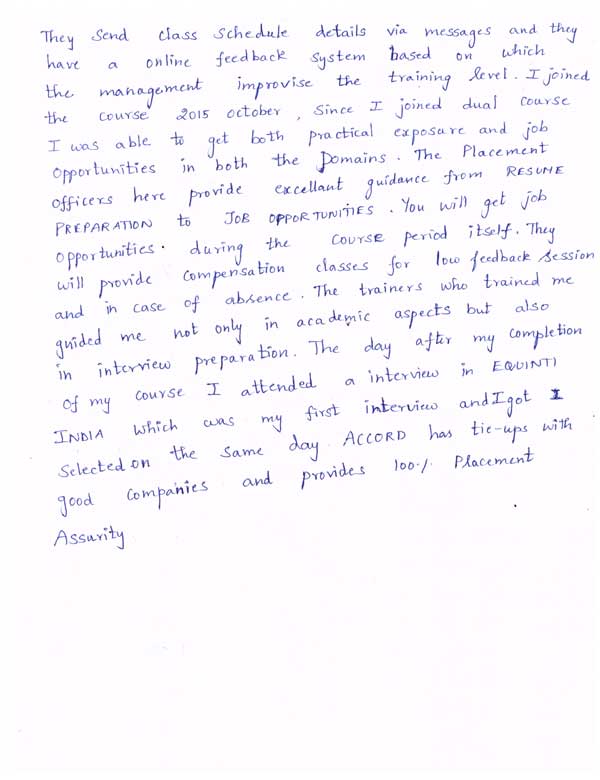 They send class schedule details via messages and they
have a online feedback system based on which
the management improvise the training level. I joined
the course 2015 october, Since I joined dual course
I was able to get both practical exposure and job
opportunities in both the Domains. The Placement
officers here provide excellant guidance from RESUME
PREPARATION to JOB OPPORTUNITIES. You will get job
opportunities. during the course period itself. They
will provide compensation classes for low feedback session
and in case of absence. The trainers who trained me
guided me not only in academic aspects but also
in interview preparation. The day after my completion
of my course I attended a interview in EQUINTI
INDIA which was my first interview and I got
Selected on the same day. ACCORD has tie-ups with
good companies and provides 100% Placement
Assurity